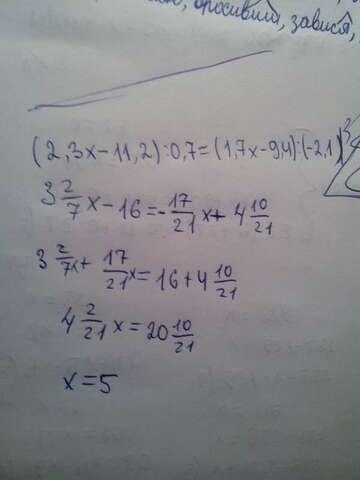 красивий, завися,
(2,3x-11,2):0,7=(1,7x-9,4):(-2,1)
3 2/7 x-16=-17/21 x+4 10/21
3 2/7 x+17/21 x=16+4 10/21
4 2/21 x=20 10/21
x=5